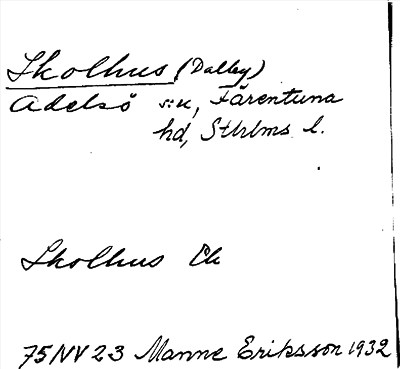 Skolhus (Dalby)
Adelsö s:n, Färentuna
hd, Sthlms l.
Skolhus Ek
75NV23 Manne Eriksson 1932